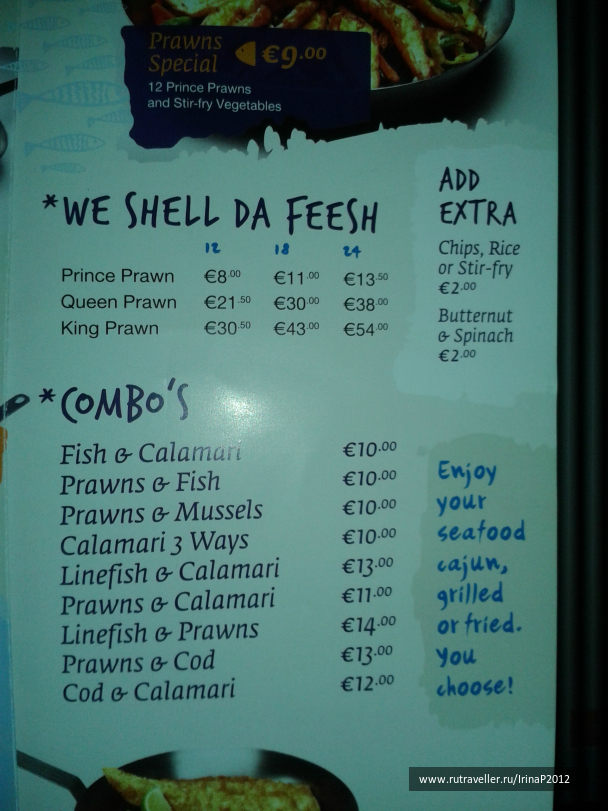 Prawns
Special €9.00
12 Prince Prawns
and Stir-fry Vegetables
*WE SHELL DA FEESH
12 18 24
Prince Prawn €8.00 €11.00 €13.50
Queen Prawn €21.50 €30.00 €38.00
King Prawn €30.50 €43.00 €54.00
ADD
EXTRA
Chips, Rice
or Stir-fry
€2.00
Butternut
& Spinach
€2.00
*COMBO'S
Fish & Calamari €10.00
Prawns & Fish €10.00
Prawns & Mussels €10.00
Calamari 3 Ways €10.00
Linefish & Calamari €13.00
Prawns & Calamari €11.00
Linefish & Prawns €14.00
Prawns & Cod €13.00
Cod & Calamari €12.00
Enjoy
your
seafood
cajun,
grilled
or fried.
you
choose!
www.rutraveller.ru/IrinaP2012